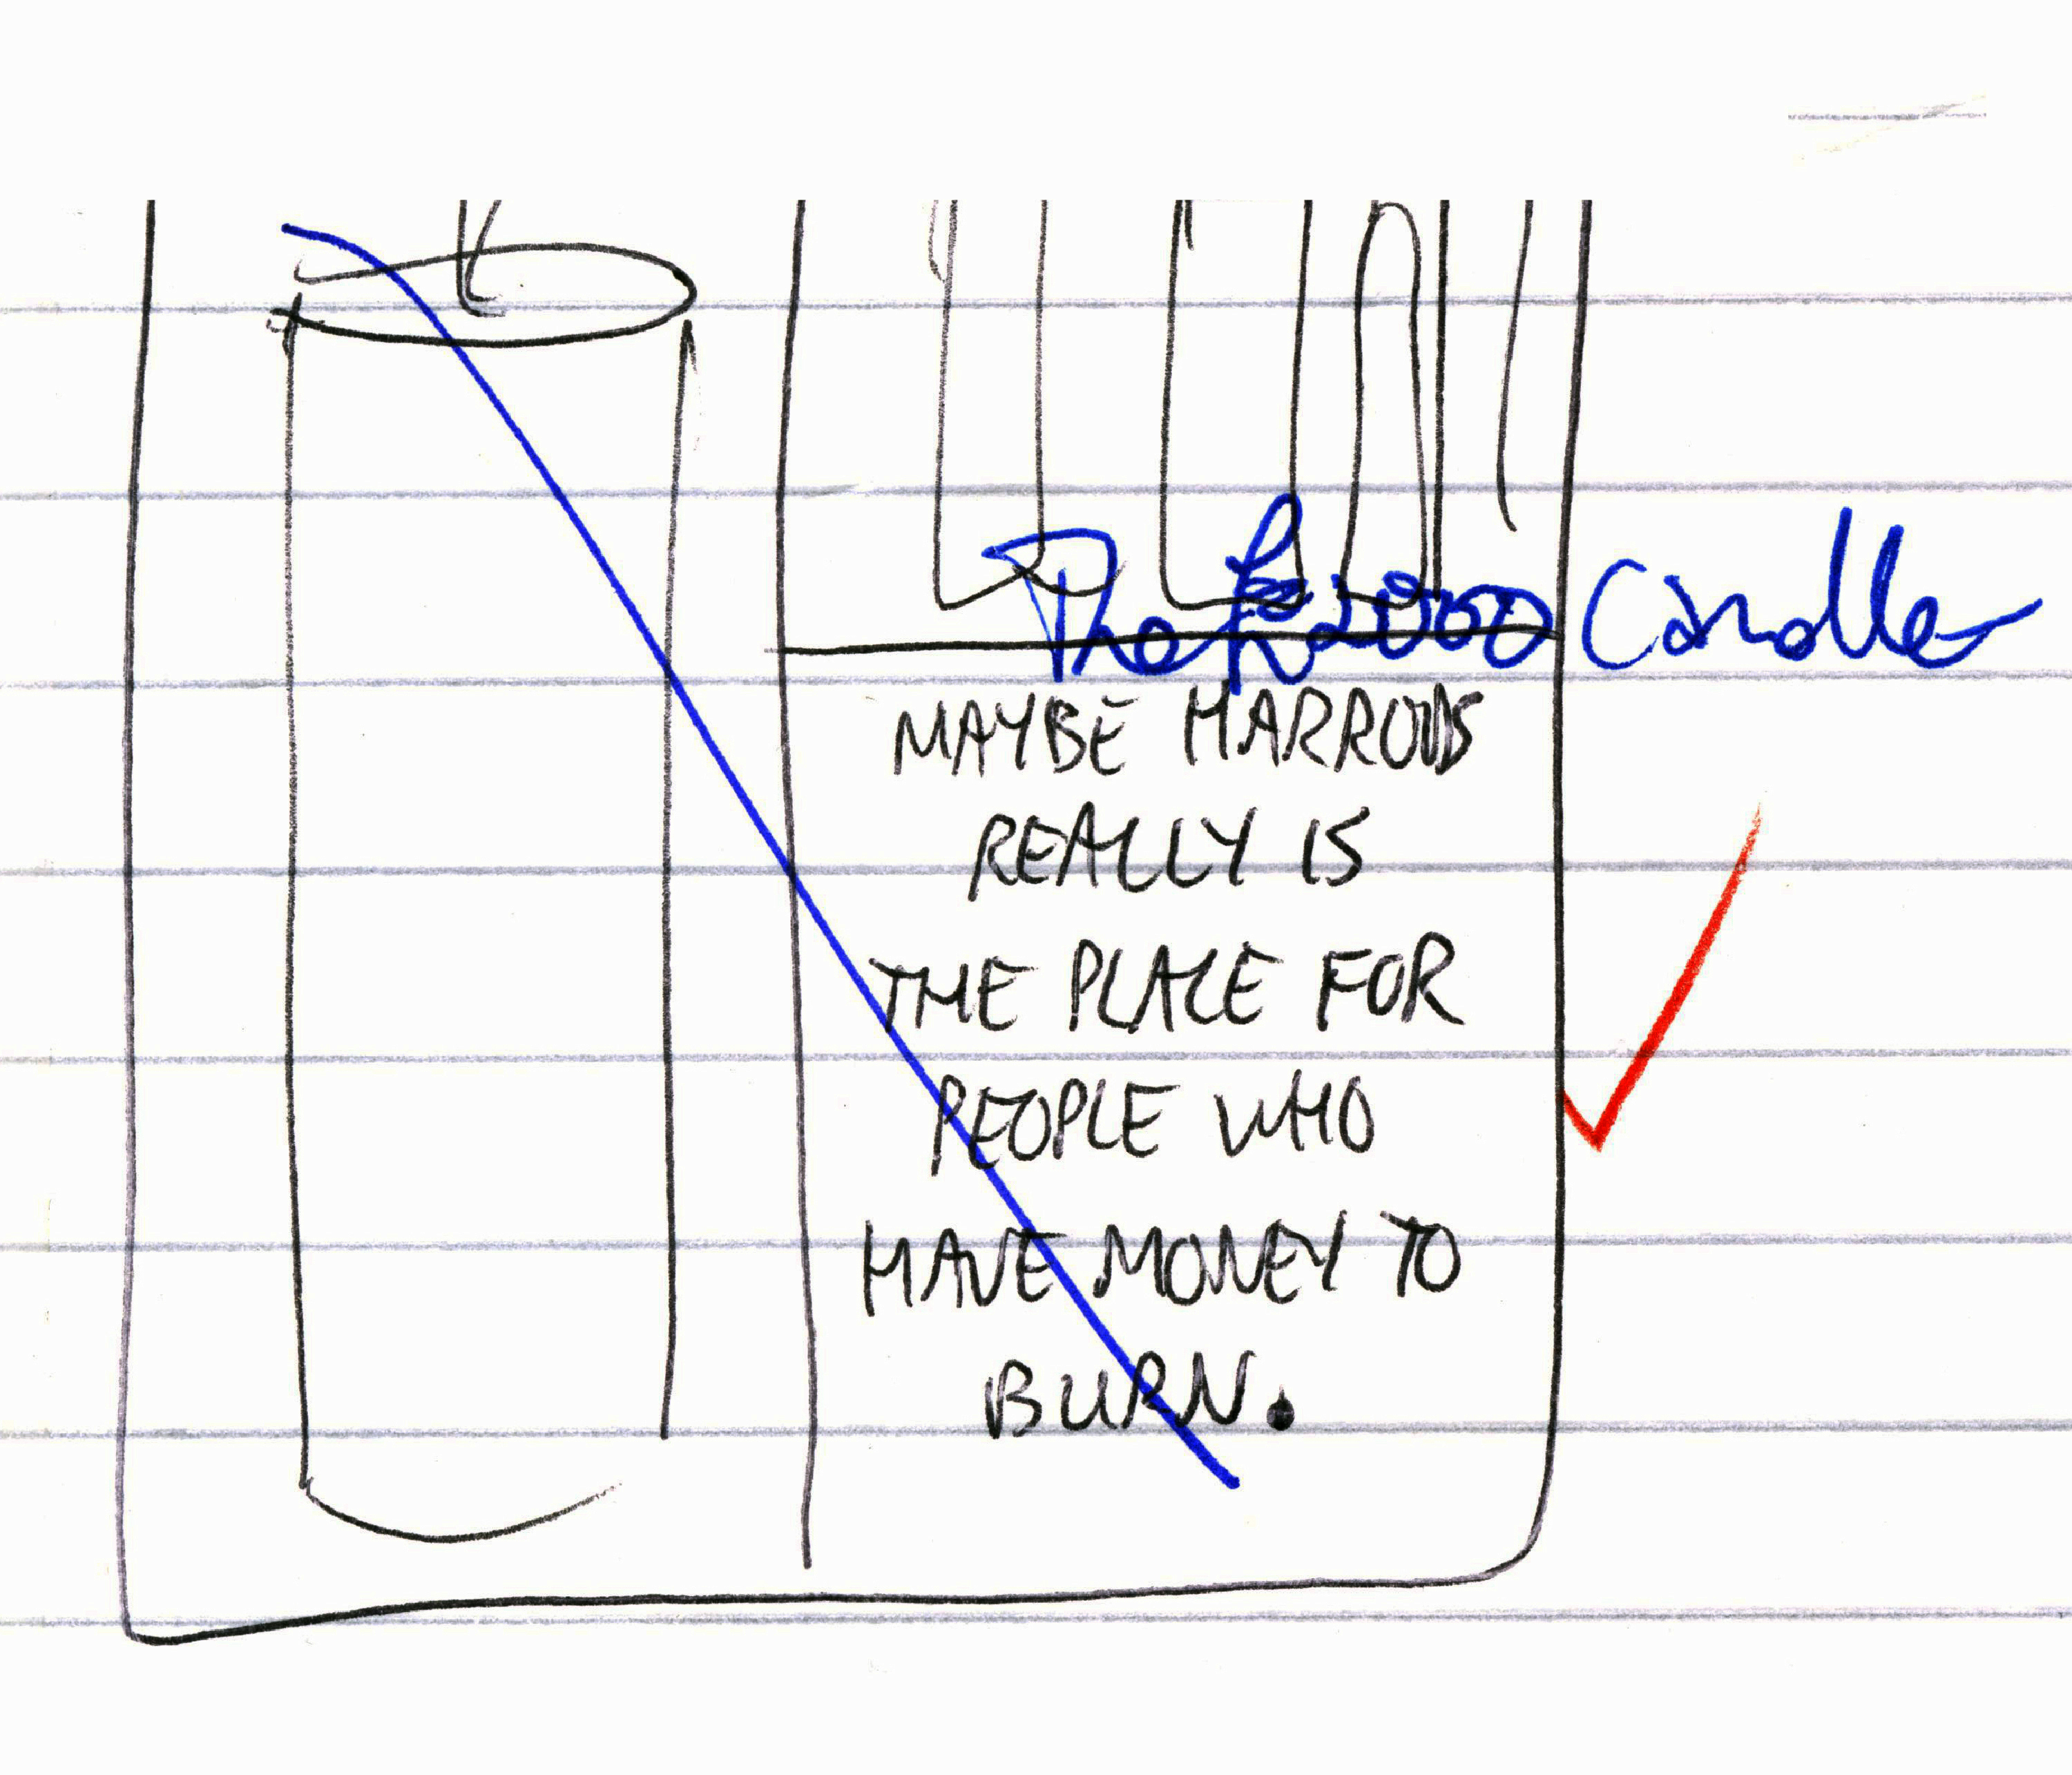 The £2000 Candle
MAYBE HARRODS
REALLY IS
THE PLACE FOR
PEOPLE WHO
HAVE MONEY TO
BURN.